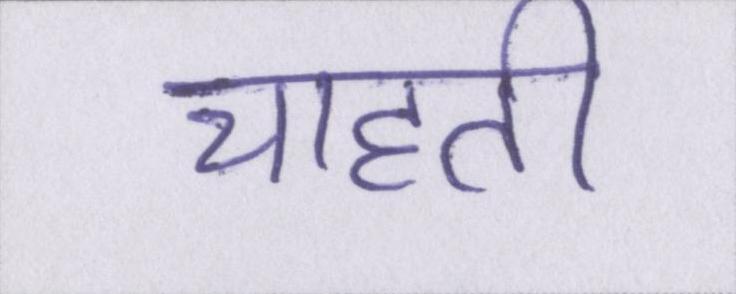 चाहती